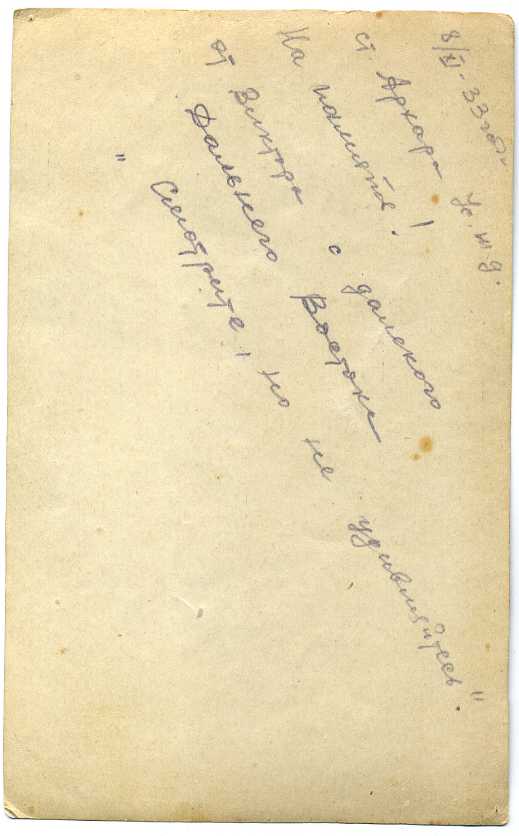 8/XI-33 года
ст Архара Ус.ж.д.
На память!
от Виктора с далекого
Дальнего Востока
"Смотрите, но не удивляйтесь".